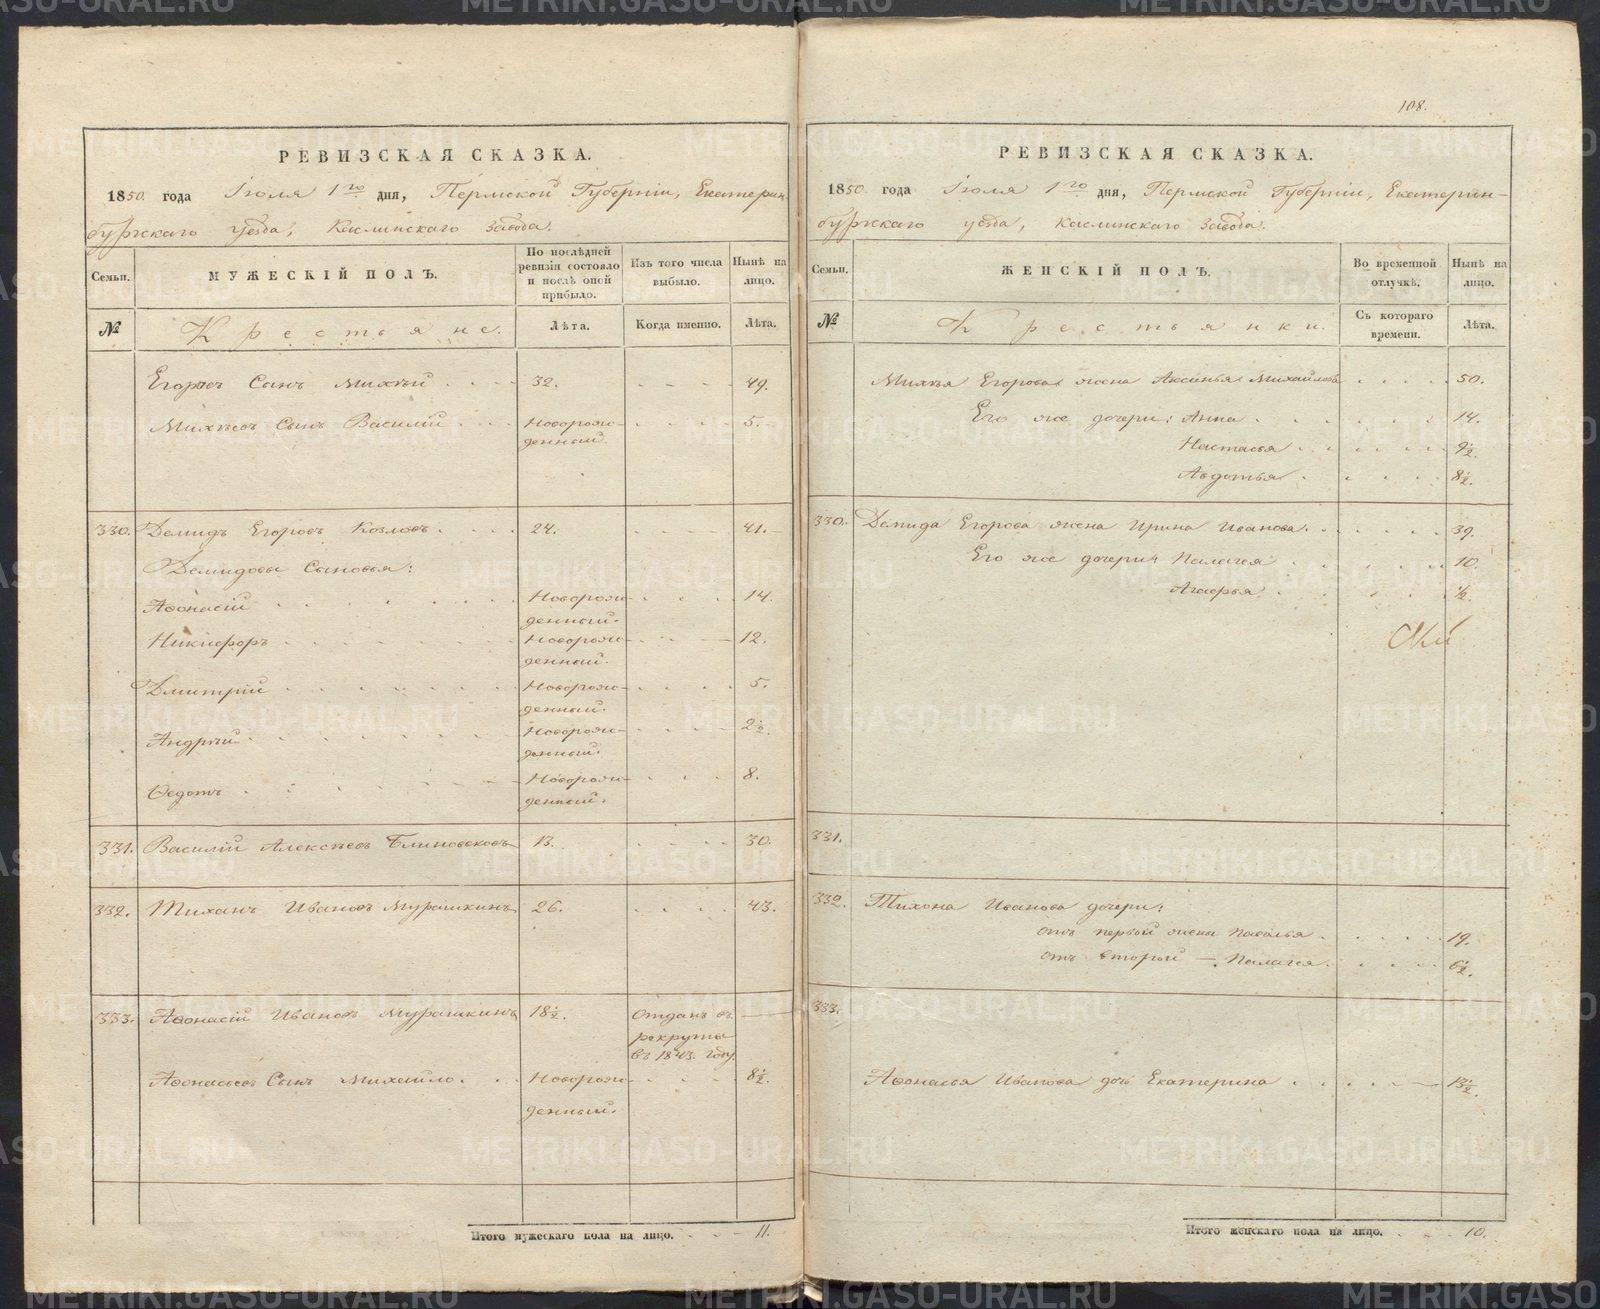 108.
РЕВИЗСКАЯ СКАЗКА.
1850 года Іюля 1го дня, Пермской Губерніи, Екатерин-
бургскаго уезда, Каслинскаго завода.
Семьи.
МУЖЕСКІЙ ПОЛЪ.
По послѣдней ревизіи состояло и послѣ оной прибыло.
Изъ того числа выбыло.
Нынѣ на лицо.
№
Крестьяне.
Лѣта.
Когда именно.
Лѣта.
Егоровъ Сынъ Михѣй 32. 49.
Михѣевъ Сынъ Василій Новорож-
денный. 5.
330. Демидъ Егоровъ Козловъ 24. 41.
Демидовы Сыновья:
Афонасій Новорож-
денный. 14.
Никифоръ Новорож-
денный. 12.
Дмитрій Новорож-
денный. 5.
Андрѣй Новорож-
денный. 2½.
Ѳедотъ Новорож-
денный. 8.
331. Василій Алексѣевъ Блиновсковъ 13. 30.
332. Тиханъ Ивановъ Мурашкинъ 26. 43.
333. Афонасій Ивановъ Мурашкинъ 18½. Отданъ въ
рекруты
въ 1843. году.
Афонасьевъ Сынъ Михайло Новорож-
денный. 8½.
Итого мужескаго пола на лицо. 11.
РЕВИЗСКАЯ СКАЗКА.
1850 года Іюля 1го дня, Пермской Губерніи, Екатерин-
бургскаго уезда, Каслинскаго завода.
Семьи.
ЖЕНСКІЙ ПОЛЪ.
Во временной отлучкѣ.
Нынѣ на лицо.
№
Крестьянки.
Съ котораго времени.
Лѣта.
Михѣя Егорова жена Аксинья Михайлова 50.
Его же дочери: Анна 14.
Настасья 9½.
Авдотья 8½.
330. Демида Егорова жена Ирина Иванова. 39.
Его же дочери: Палагея 10.
Агафья. ½.
331.
332. Тихона Иванова дочери:
отъ первой жены Наталья 19.
отъ второй — Палагея. 6½.
333.
Афонасья Иванова дочь Екатерина 13½.
Итого женскаго пола на лицо. 10.
METRIKI.GASO-URAL.RU